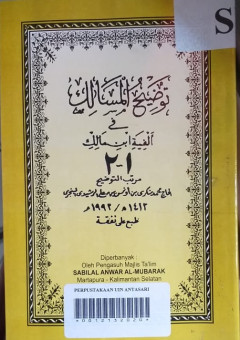 S
توضيح المسالك
في
ألفية ابن مالك
١-٢
مرتب التوضيح
١٤١٣ه/١٩٩٢م
طبع على نفقة
Diperbanyak :
Oleh Pengasuh Majlis Ta'lim
SABILAL ANWAR AL-MUBARAK
Martapura - Kalimantan Selatan
PERPUSTAKAAN UIN ANTASARI